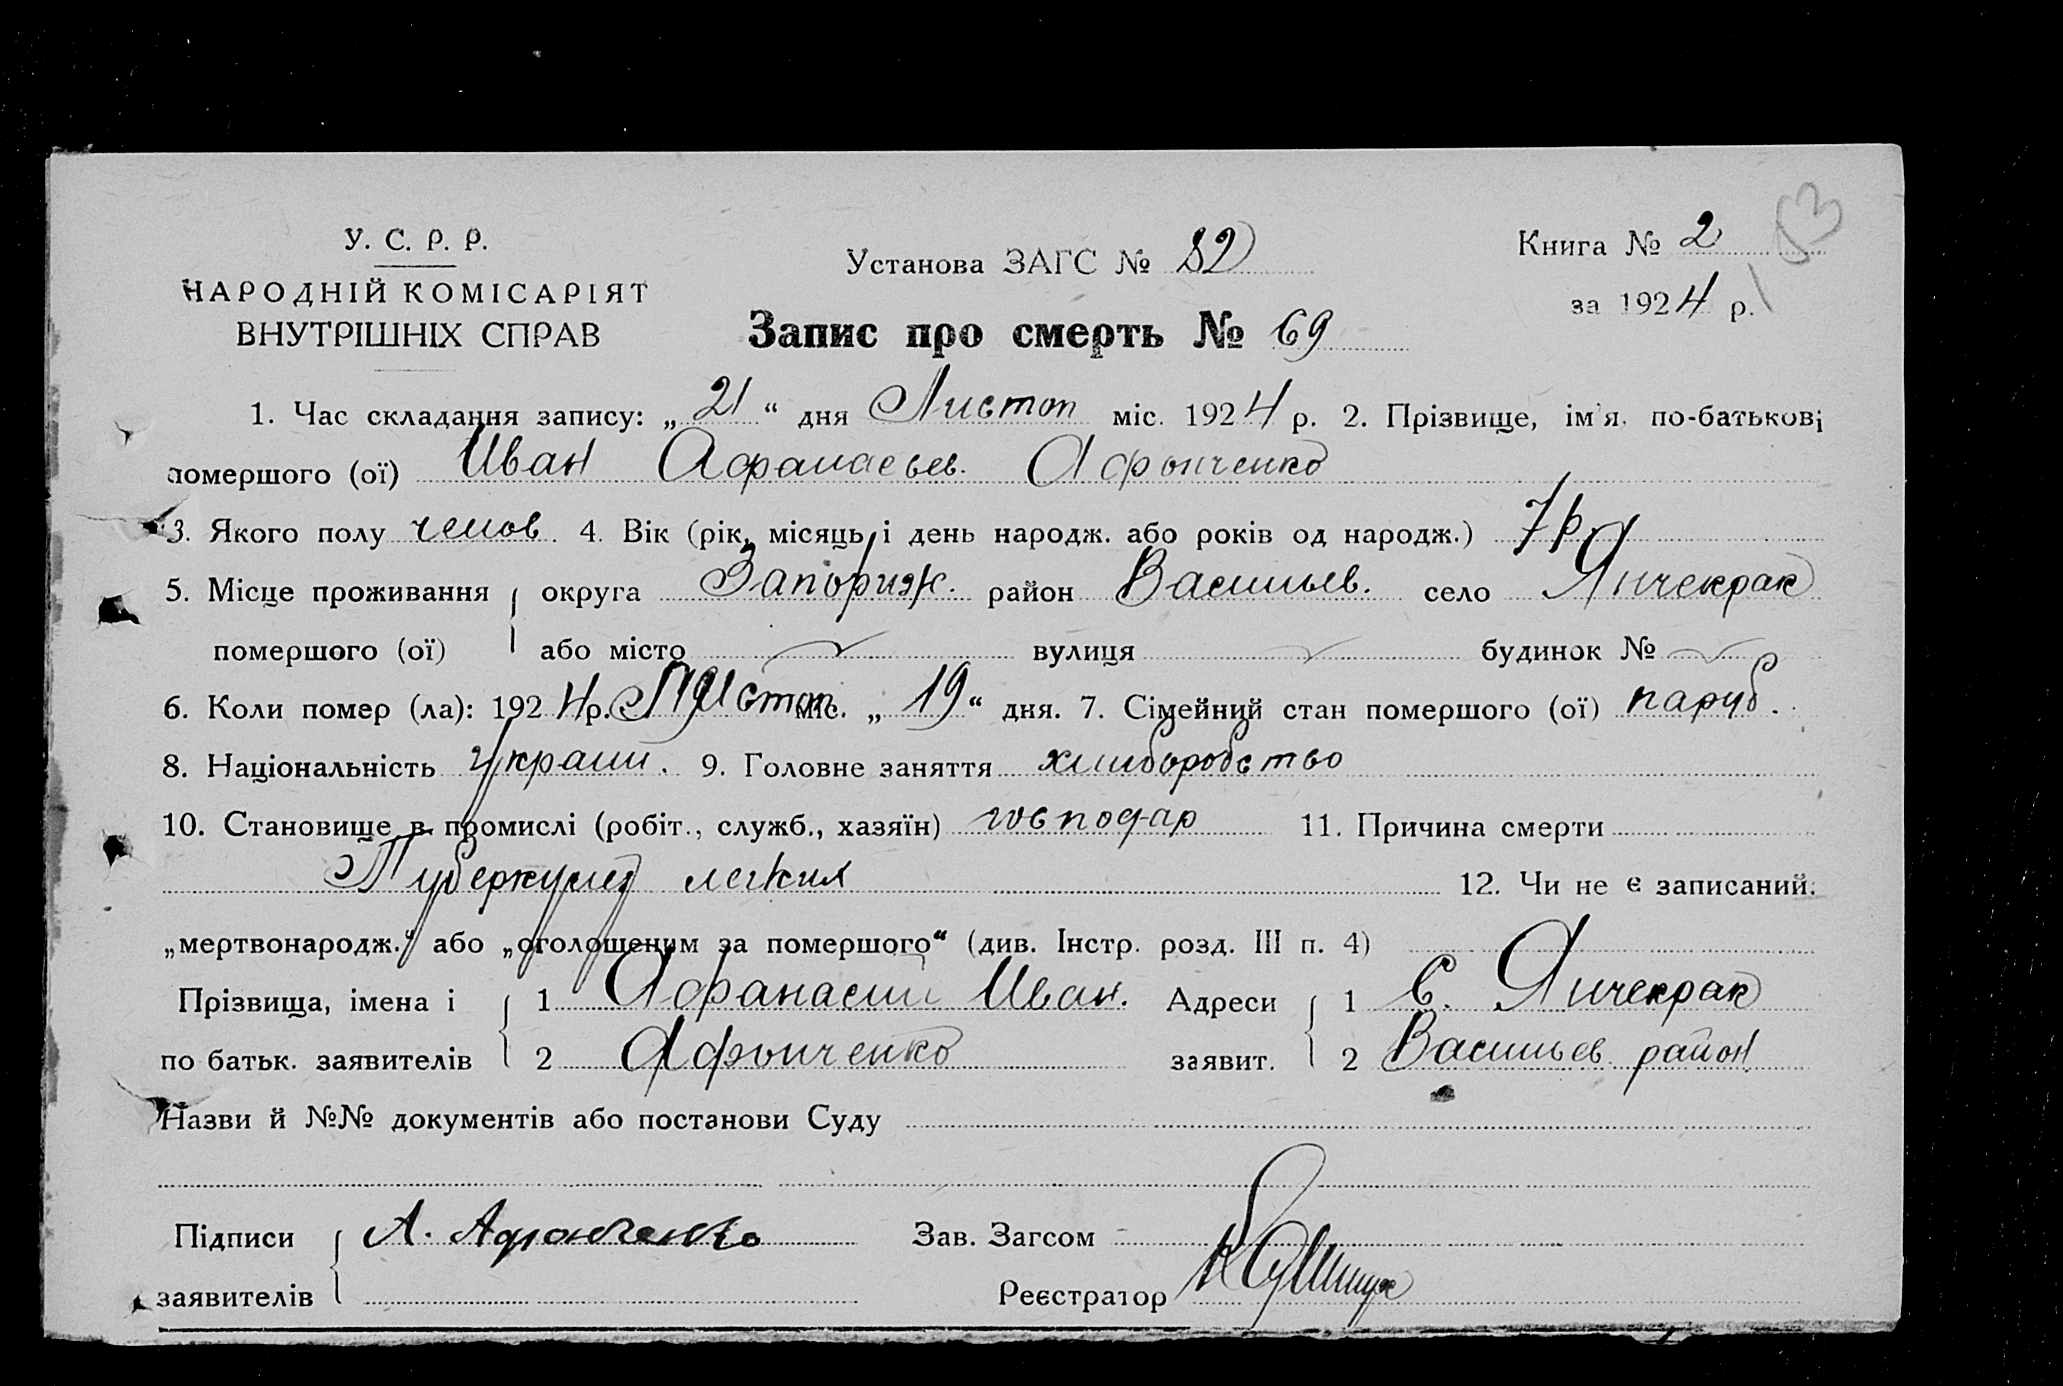 У. С. Р. Р.
НАРОДНІЙ КОМІСАРІЯТ
ВНУТРІШНІХ СПРАВ
Установа ЗАГС № 82
Книга № 2
за 1924 р.
Запис про смерть № 69
1. Час складання запису: „21“ дня Листоп міс. 1924 р. 2. Прізвище, ім'я, по-батькові
помершого (ої) Иван Афанасьев. Афонченко
3. Якого полу челов. 4. Вік (рік, місяць і день народж. або років од народж.) 7 р
5. Місце проживання округа Запориж. район Васильев. село Янчекрак
помершого (ої) або місто вулиця будинок №
6. Коли помер (ла): 1924 р. Листоп. міс. „19“ дня. 7. Сімейний стан помершого (ої) паруб.
8. Національність Украин. 9. Головне заняття хлиборобство
10. Становище в промислі (робіт., служб., хазяїн) господар 11. Причина смерти
Туберкулез легких 12. Чи не є записаний
„мертвонародж.“ або „оголошеним за помершого“ (див. Інстр. розд. III п. 4)
Прізвища, імена і 1 Афанасий Иван. Адреси 1 С. Янчекрак
по батьк. заявителів 2 Афонченко заявит. 2 Васильев. район
Назви й №№ документів або постанови Суду
Підписи А. Афонченко Зав. Загсом
заявителів Реєстратор